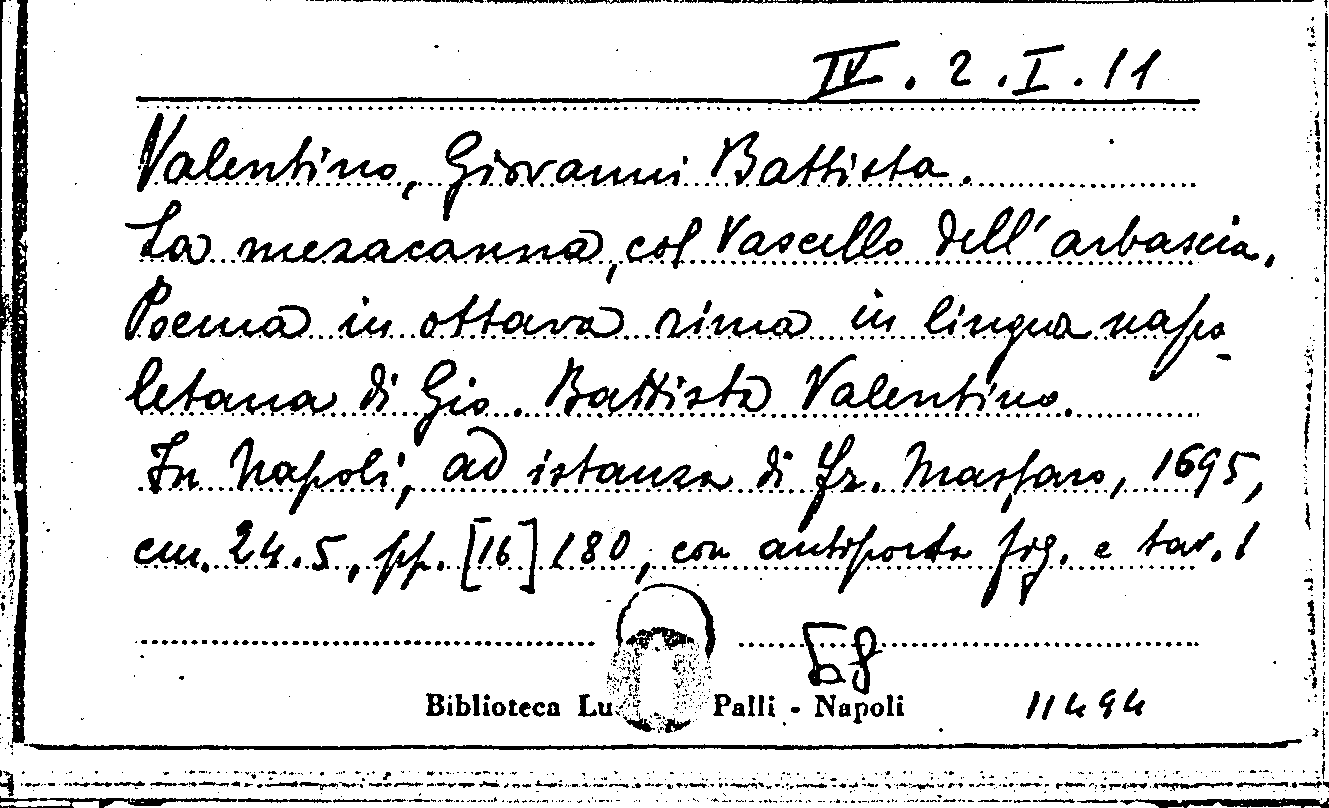 IV. 2. I. 11
Valentino, Giovanni Battista.
La mezacanna, col Vascello dell'arbascia.
Poema in ottava rima in lingua napo
letana di Gio. Battista Valentino.
In Napoli, ad istanza di Fr. Massaro, 1695,
cm. 24.5, pp. [16] 180, con antiporta fig. e tav. 1
Biblioteca Lu Palli - Napoli 11494